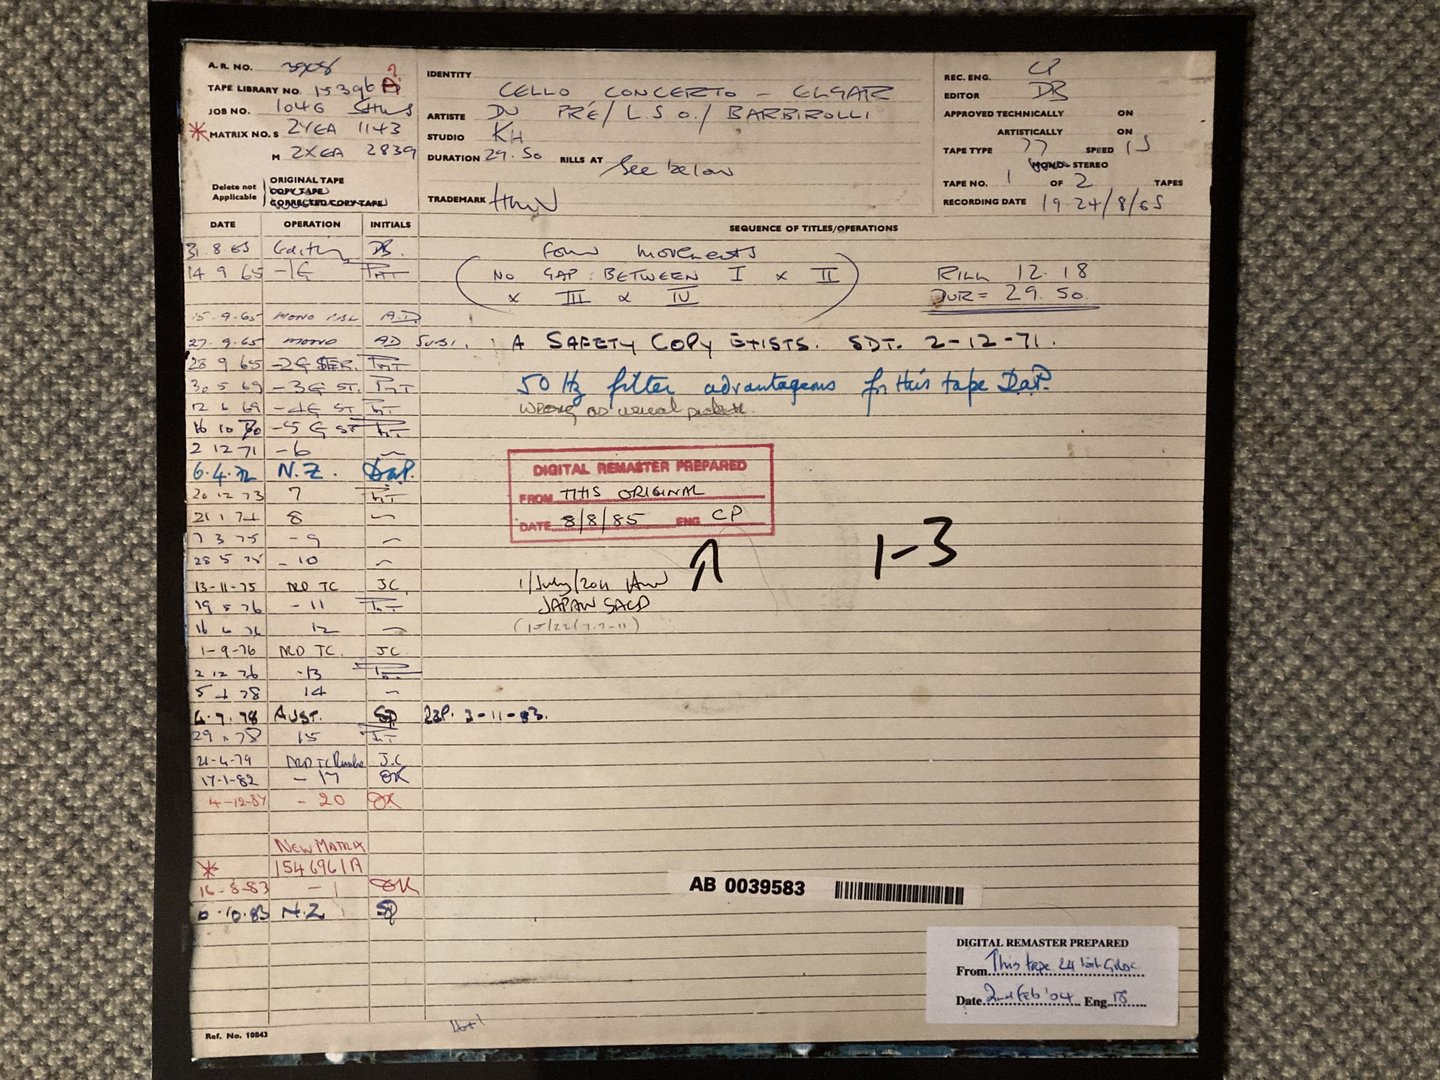 A.R. NO. 3908
TAPE LIBRARY NO. 15396
JOB NO. 1046
* MATRIX NO. S 2YEA 1143
M 2XEA 2839
Delete not Applicable
ORIGINAL TAPE
COPY TAPE
CORRECTED COPY TAPE
IDENTITY CELLO CONCERTO - ELGAR
ARTISTE DU PRÉ / L.S.O. / BARBIROLLI
STUDIO KH
DURATION 29.50 RILLS AT See below
TRADEMARK HMV
REC. ENG. CP
EDITOR DB
APPROVED TECHNICALLY ON
ARTISTICALLY ON
TAPE TYPE 77 SPEED 15
MONO- STEREO
TAPE NO. 1 OF 2 TAPES
RECORDING DATE 19.24/8/65
DATE OPERATION INITIALS SEQUENCE OF TITLES/OPERATIONS
31.8.65 DB. Four movements
14 9 65 -1G (NO GAP: BETWEEN I & II RILL 12.18
& III & IV) DUR = 29.50
15.9.65 MONO A.D.
27.9.65 MONO AD : A SAFETY COPY EXISTS. SDT. 2-12-71.
28 9 65 -2G
30 5 69 -3G ST. 50 Hz filter advantageous for this tape DaP.
12 6 69 -4G ST Wrong as usual
16 10 70 -5G ST
2 12 71 -6
6.4.72 N.Z. DaP.
DIGITAL REMASTER PREPARED
FROM THIS ORIGINAL
DATE 8/8/85 ENG. CP
20 12 73 7
21 1 74 8
7 3 75 -9
1-3
28 5 75 -10
13-11-75 TC JC
1/July/2011
JAPAN SACD
19 5 76 -11
16 6 76 12
1-9-76 TC. JC
2 12 76 -13
5 4 78 14
6.7.78 AUST. SP 3-11-83.
29 78 15
21-4-79 J.C
17-1-82 -17 OK
4-12-84 -20 OK
NEW MATRIX
* 1546961A
16-8-83 -1 OK
10.83 N.Z SP
AB 0039583
DIGITAL REMASTER PREPARED
From This tape 24 bit
Date 2nd Feb '04 Eng.
Ref. No. 10843